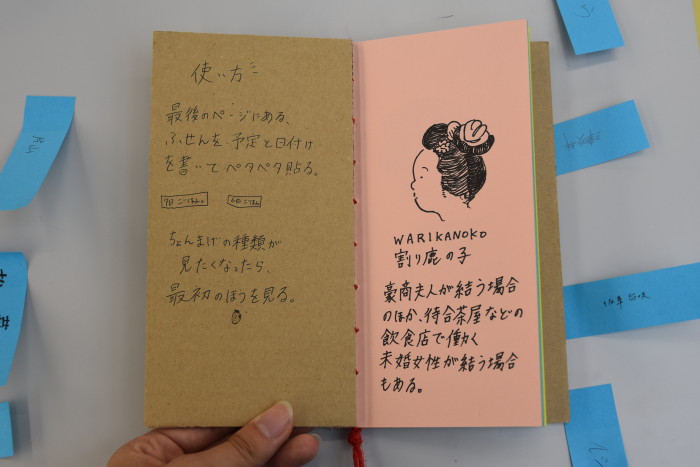 使い方
最後のページにある、
ふせんを予定と日付け
を書いてペタペタ貼る。
ちょんまげの種類が
見たくなったら、
最初のほうを見る。
WARIKANOKO
割り鹿の子
豪商夫人が結う場合
のほか、待合茶屋などの
飲食店で働く
未婚女性が結う場合
もある。